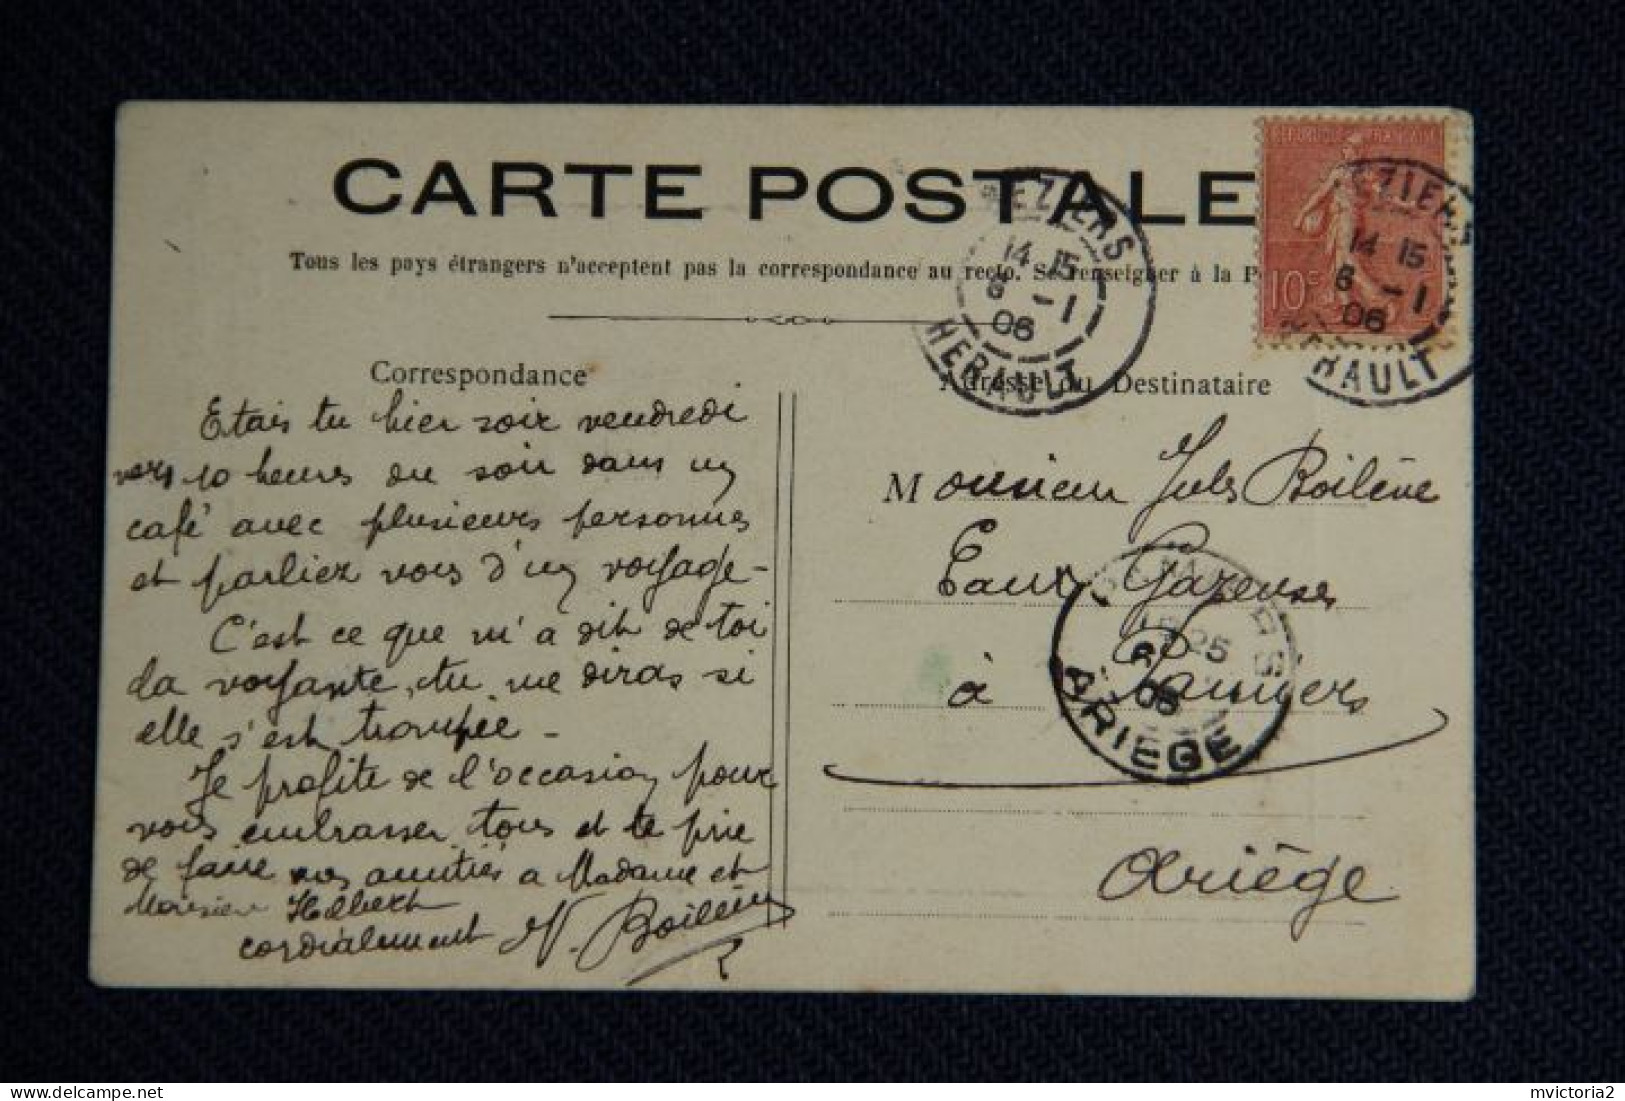 CARTE POSTALE
Tous les pays étrangers n'acceptent pas la correspondance au recto. Se renseigner à la P
Correspondance
Etais tu hier soir vendredi
vers 10 heures du soir dans un
café avec plusieurs personnes
et parliez vous d'un voyage -
C'est ce que m'a dit de toi
la voyante, tu me diras si
elle s'est trompée -
Je profite de l'occasion pour
vous embrasser tous et te prie
de faire nos amitiés a Madame et
Monsieur
cordialement
Adresse du Destinataire
Monsieur Jules Boilève
Eaux Gazeuses
à Pamiers
Ariège
REPUBLIQUE FRANÇAISE
10c
BEZIERS
14 15
6 -1
06
HERAULT
EZIERS
14 15
6 -1
06
HERAULT
25
06
ARIEGE
mvictoria2